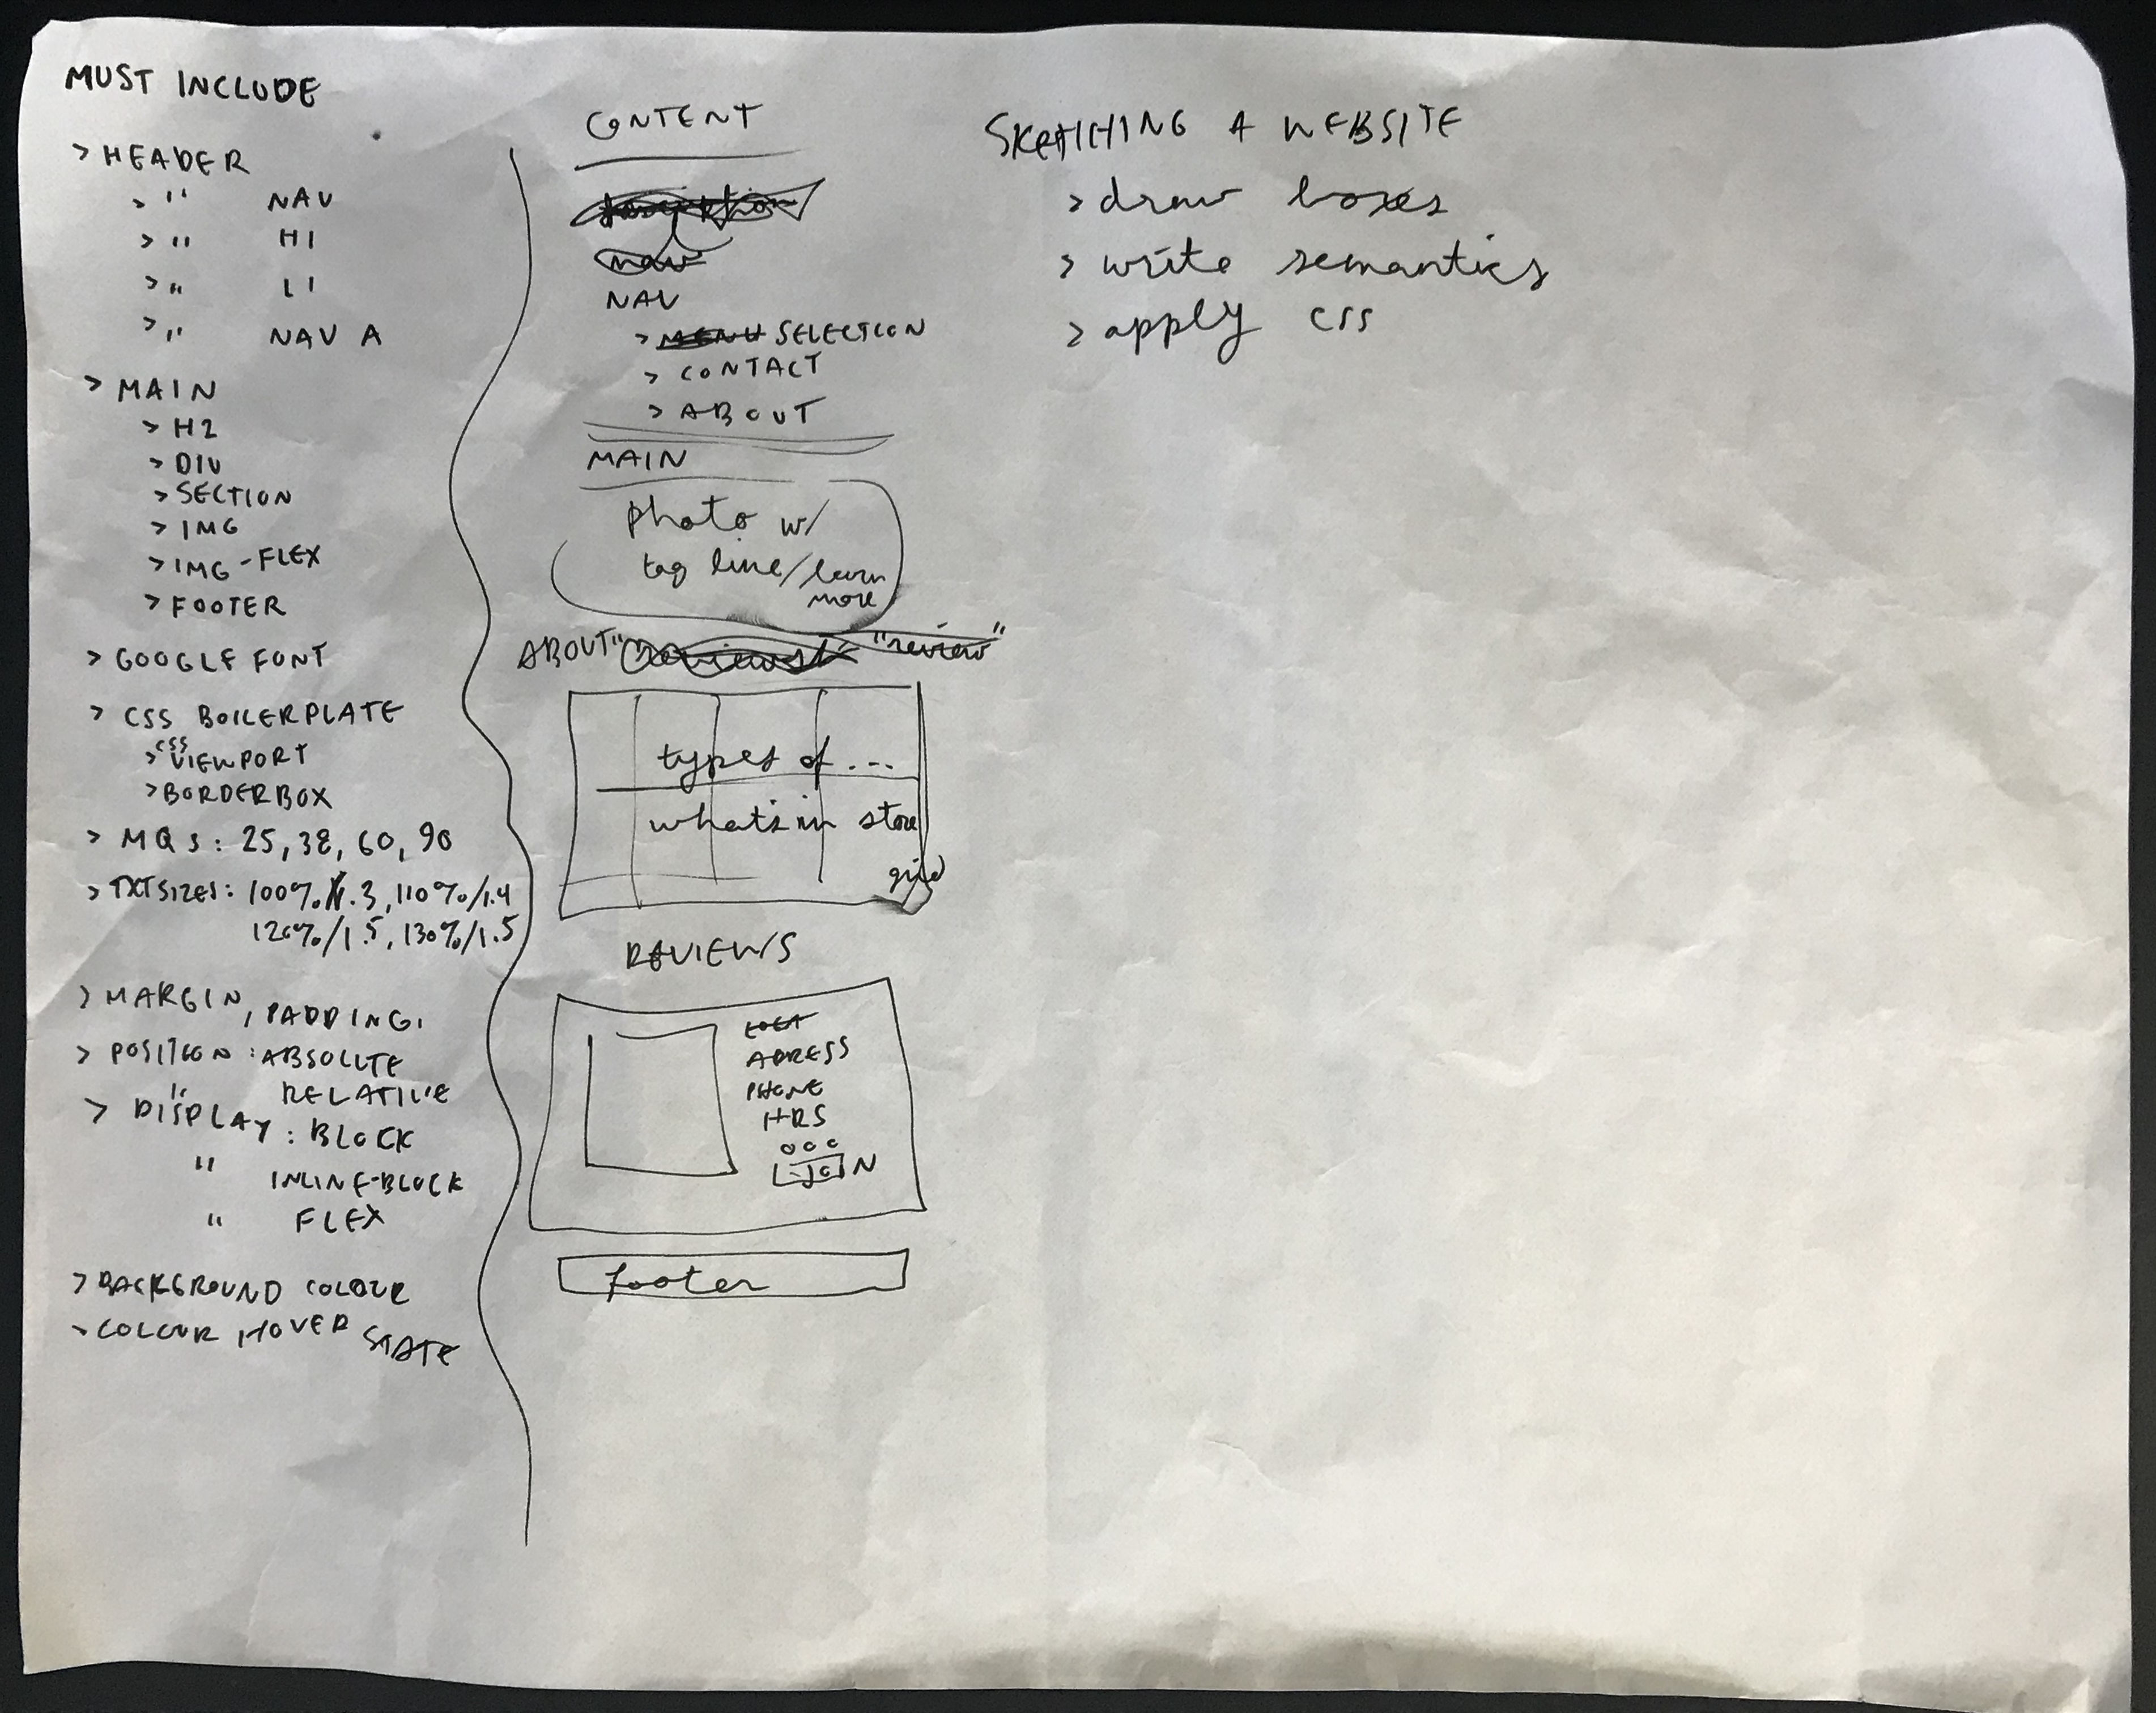 MUST INCLUDE
> HEADER
> " NAV
> " H1
> " LI
> " NAV A
> MAIN
> H2
> DIV
> SECTION
> IMG
> IMG-FLEX
> FOOTER
> GOOGLE FONT
> CSS BOILERPLATE
> CSS VIEWPORT
> BORDERBOX
> MQS: 25, 38, 60, 90
> TXT SIZES: 100%/1.3, 110%/1.4
120%/1.5, 130%/1.5
> MARGIN, PADDING,
> POSITION: ABSOLUTE
" RELATIVE
> DISPLAY: BLOCK
" INLINE-BLOCK
" FLEX
> BACKGROUND COLOUR
> COLOUR HOVER STATE
CONTENT
nav
NAV
> MENU SELECTION
> CONTACT
> ABOUT
MAIN
photo w/
tag line/learn
more
ABOUT "reviews" "review"
types of ...
what's in store
grid
REVIEWS
ADRESS
PHONE
HRS
JOIN
footer
SKETCHING A WEBSITE
> draw boxes
> write semantics
> apply css